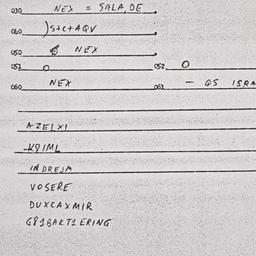 030 NEX = SALA, DE
040 )S+C+AQV
050 NEX
051 O 052 O
060 NEX 061 - QS ISRA
AZELXI
K9IML
INDREJA
VOSERE
DUXCAXMIR
G81BAKT1ERING